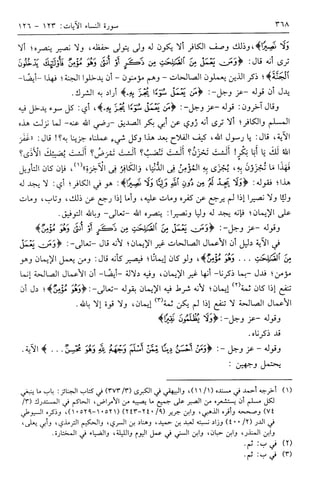 ٣٦٨ سورة النساء الآيات: ١٢٣ - ١٢٦
وَلَا نَصِيرًا﴾، وذلك وصف الكافر ألا يكون له ولى يتولى حفظه، ولا نصير ينصره؛ ألا
ترى أنه قال: ﴿وَمَن يَعْمَلْ مِنَ الصَّالِحَاتِ مِن ذَكَرٍ أَوْ أُنثَىٰ وَهُوَ مُؤْمِنٌ فَأُولَٰئِكَ يَدْخُلُونَ
الْجَنَّةَ﴾؛ ذكر الذين يعملون الصالحات - وهم مؤمنون - أن يدخلوا الجنة؛ فهذا -أيضًا-
يدل أن قوله -عز وجل-: ﴿مَن يَعْمَلْ سُوءًا يُجْزَ بِهِ﴾ أراد به الشرك.
وقال آخرون: قوله -عز وجل-: ﴿مَن يَعْمَلْ سُوءًا يُجْزَ بِهِ﴾، أي: كل سوء يدخل فيه
المسلم والكافر؛ ألا ترى أنه رُوي عن أبي بكر الصديق -رضي الله عنه- لما نزلت هذه
الآية، قال: يا رسول الله، كيف الفلاح بعد هذا وكل شيء عملناه جزينا به؟! قال: «غَفَرَ
اللهُ لَكَ يَا أَبَا بَكْرٍ! أَلَسْتَ تَحْزَنُ؟ أَلَسْتَ تَنْصَبُ؟ أَلَسْتَ تَمْرَضُ؟ أَلَسْتَ يُصِيبُكَ الْأَذَى؟
فَهَذَا مَا تُجْزَوْنَ بِهِ، يُجْزَى بِهِ الْمُؤْمِنُ فِي الدُّنْيَا، وَالْكَافِرُ فِي الْآخِرَةِ»(١)، فإن كان التأويل
هذا؛ فقوله: ﴿وَلَا يَجِدْ لَهُ مِن دُونِ اللَّهِ وَلِيًّا وَلَا نَصِيرًا﴾: هو في الكافر؛ أي: لا يجد له
وليًا ولا نصيرا إذا لم يرجع عن كفره ومات عليه، وأما إذا رجع عن ذلك، وتاب، ومات
على الإيمان؛ فإنه يجد له وليا ونصيرا؛ ينصره الله -تعالى- وبالله التوفيق.
وقوله -عز وجل-: ﴿وَمَن يَعْمَلْ مِنَ الصَّالِحَاتِ مِن ذَكَرٍ أَوْ أُنثَىٰ وَهُوَ مُؤْمِنٌ﴾
في الآية دليل أن الأعمال الصالحات غير الإيمان؛ لأنه قال -تعالى-: ﴿وَمَن يَعْمَلْ
مِنَ الصَّالِحَاتِ ... وَهُوَ مُؤْمِنٌ﴾، ولو كان إيمانًا؛ فيصير كأنه قال: ومن يعمل الإيمان وهو
مؤمن؛ فدل -بما ذكرنا- أنها غير الإيمان، وفيه دلالة -أيضًا- أن الأعمال الصالحة إنما
تنفع إذا كان ثمة(٢) إيمان؛ لأنه شرط فيه الإيمان بقوله -تعالى-: ﴿وَهُوَ مُؤْمِنٌ﴾؛ دل أن
الأعمال الصالحة لا تنفع إذا لم يكن ثمة(٣) إيمان، ولا قوة إلا بالله.
وقوله -عز وجل-: ﴿وَلَا يُظْلَمُونَ نَقِيرًا﴾
قد ذكرناه.
وقوله -عز وجل-: ﴿وَمَنْ أَحْسَنُ دِينًا مِّمَّنْ أَسْلَمَ وَجْهَهُ لِلَّهِ وَهُوَ مُحْسِنٌ ...﴾ الآية.
يحتمل وجهين:
(١) أخرجه أحمد في مسنده (١/ ١١)، والبيهقي في الكبرى (٣/ ٣٧٣) في كتاب الجنائز: باب ما ينبغي
لكل مسلم أن يستشعره من الصبر على جميع ما يصيبه من الأمراض، الحاكم في المستدرك (٣/
٧٤) وصححه وأقره الذهبي، وابن جرير (٩/ ٢٤٠-٢٤٣) (١٠٥٢١-١٠٥٢٩)، وذكره السيوطي
في الدر (٢/ ٤٠٠) وزاد نسبته لعبد بن حميد، وهناد بن السري، والحكيم الترمذي، وأبي يعلى،
وابن المنذر، وابن حبان، وابن السني في عمل اليوم والليلة، والضياء في المختارة.
(٢) في ب: ثم.
(٣) في ب: ثم.